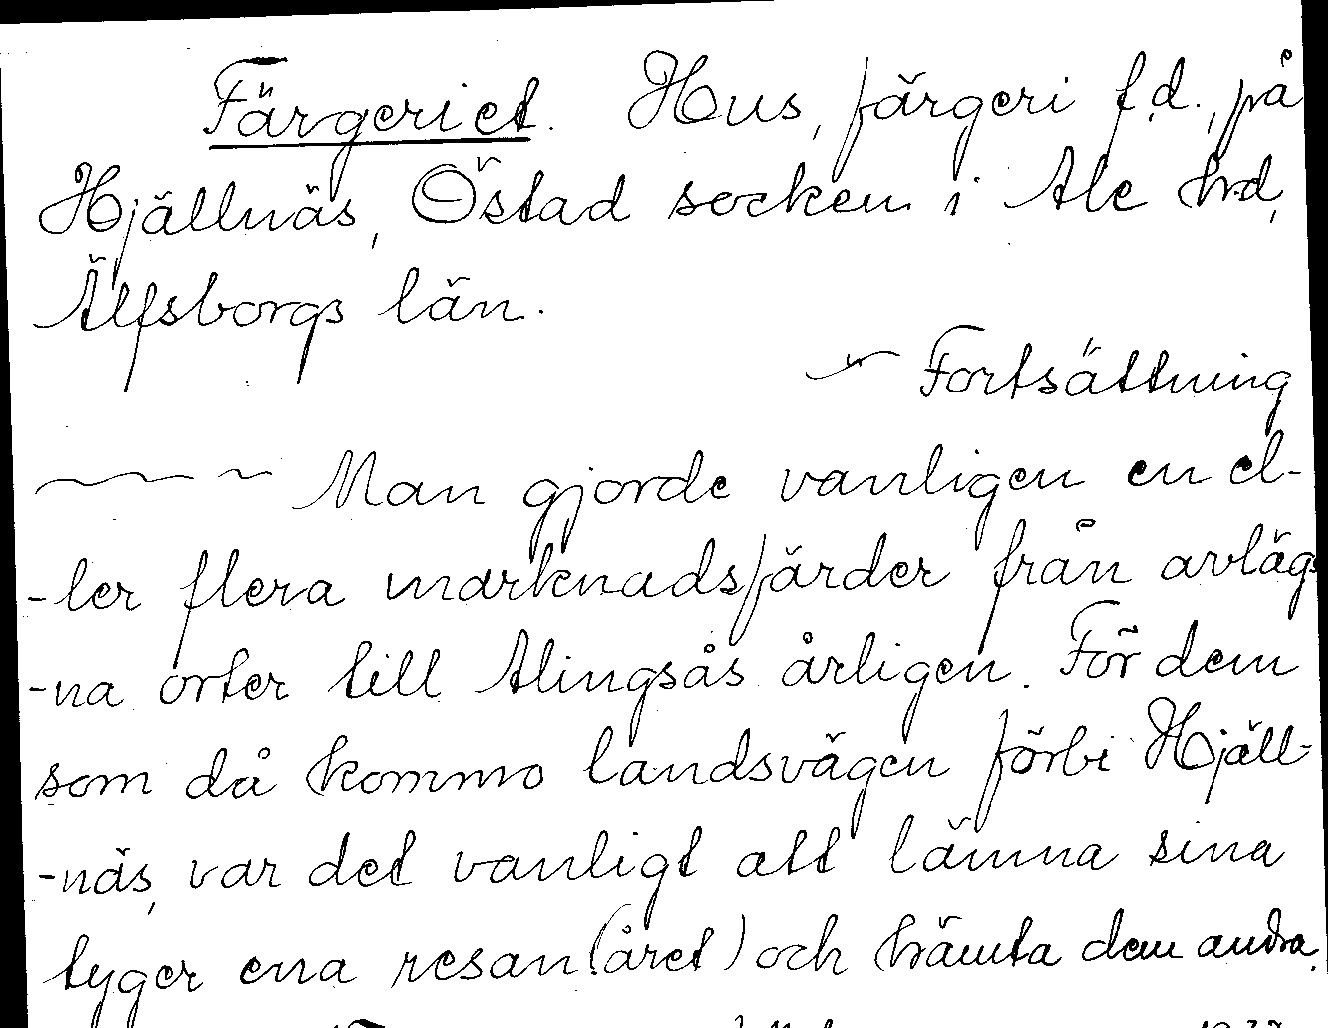 Färgeriet. Hus, färgeri f.d., på
Hjällnäs, Östad socken i Ale hrd,
Älfsborgs län.
Fortsättning
Man gjorde vanligen en el-
-ler flera marknadsfärder från avlägs
-na orter till Alingsås årligen. För dem
som då kommo landsvägen förbi Hjäll-
-näs, var det vanligt att lämna sina
tyger ena resan (året) och hämta dem andra.